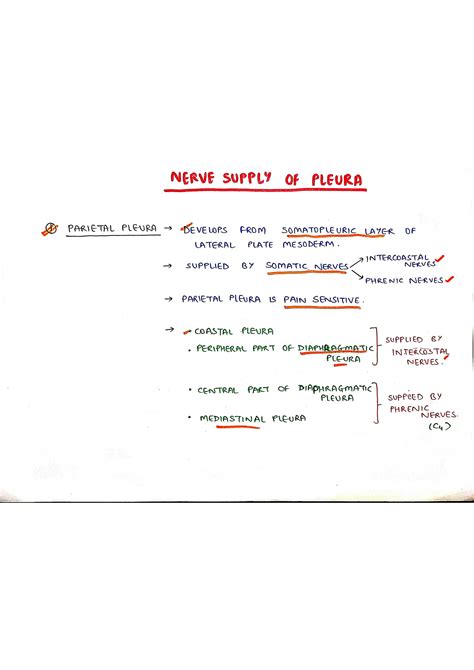 NERVE SUPPLY OF PLEURA
① PARIETAL PLEURA → DEVELOPS FROM SOMATOPLEURIC LAYER OF
LATERAL PLATE MESODERM.
→ SUPPLIED BY SOMATIC NERVES → INTERCOASTAL NERVES
→ PHRENIC NERVES
→ PARIETAL PLEURA IS PAIN SENSITIVE.
→ • COASTAL PLEURA
• PERIPHERAL PART OF DIAPHRAGMATIC
PLEURA
SUPPLIED BY
INTERCOSTAL
NERVES.
• CENTRAL PART OF DIAPHRAGMATIC
PLEURA
• MEDIASTINAL PLEURA
SUPPLIED BY
PHRENIC
NERVES
(C4)